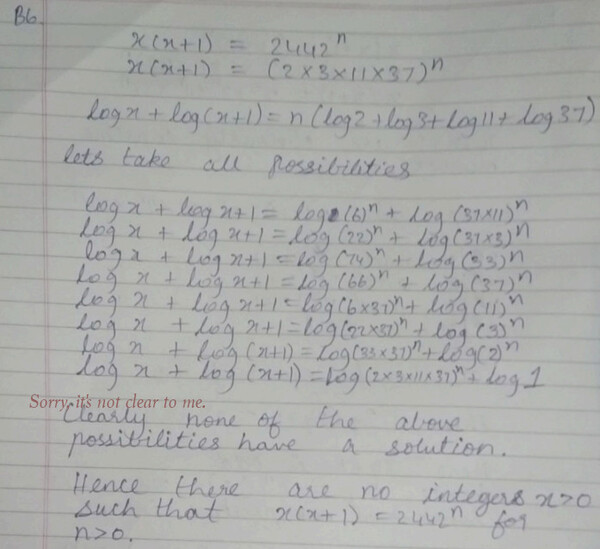 B6.
x(x+1) = 2442^n
x(x+1) = (2×3×11×37)^n
log x + log(x+1) = n(log2 + log3 + log11 + log37)
lets take all possibilities
log x + log x+1 = log (6)^n + log (37×11)^n
log x + log x+1 = log (22)^n + log (37×3)^n
log x + log x+1 = log (74)^n + log (33)^n
log x + log x+1 = log (66)^n + log (37)^n
log x + log x+1 = log (6×37)^n + log (11)^n
log x + log x+1 = log (22×37)^n + log (3)^n
log x + log (x+1) = log (33×37)^n + log (2)^n
log x + log (x+1) = log (2×3×11×37)^n + log 1
Sorry, it's not clear to me.
Clearly none of the above
possibilities have a solution.
Hence there are no integers x>0
such that x(x+1) = 2442^n for
n>0.